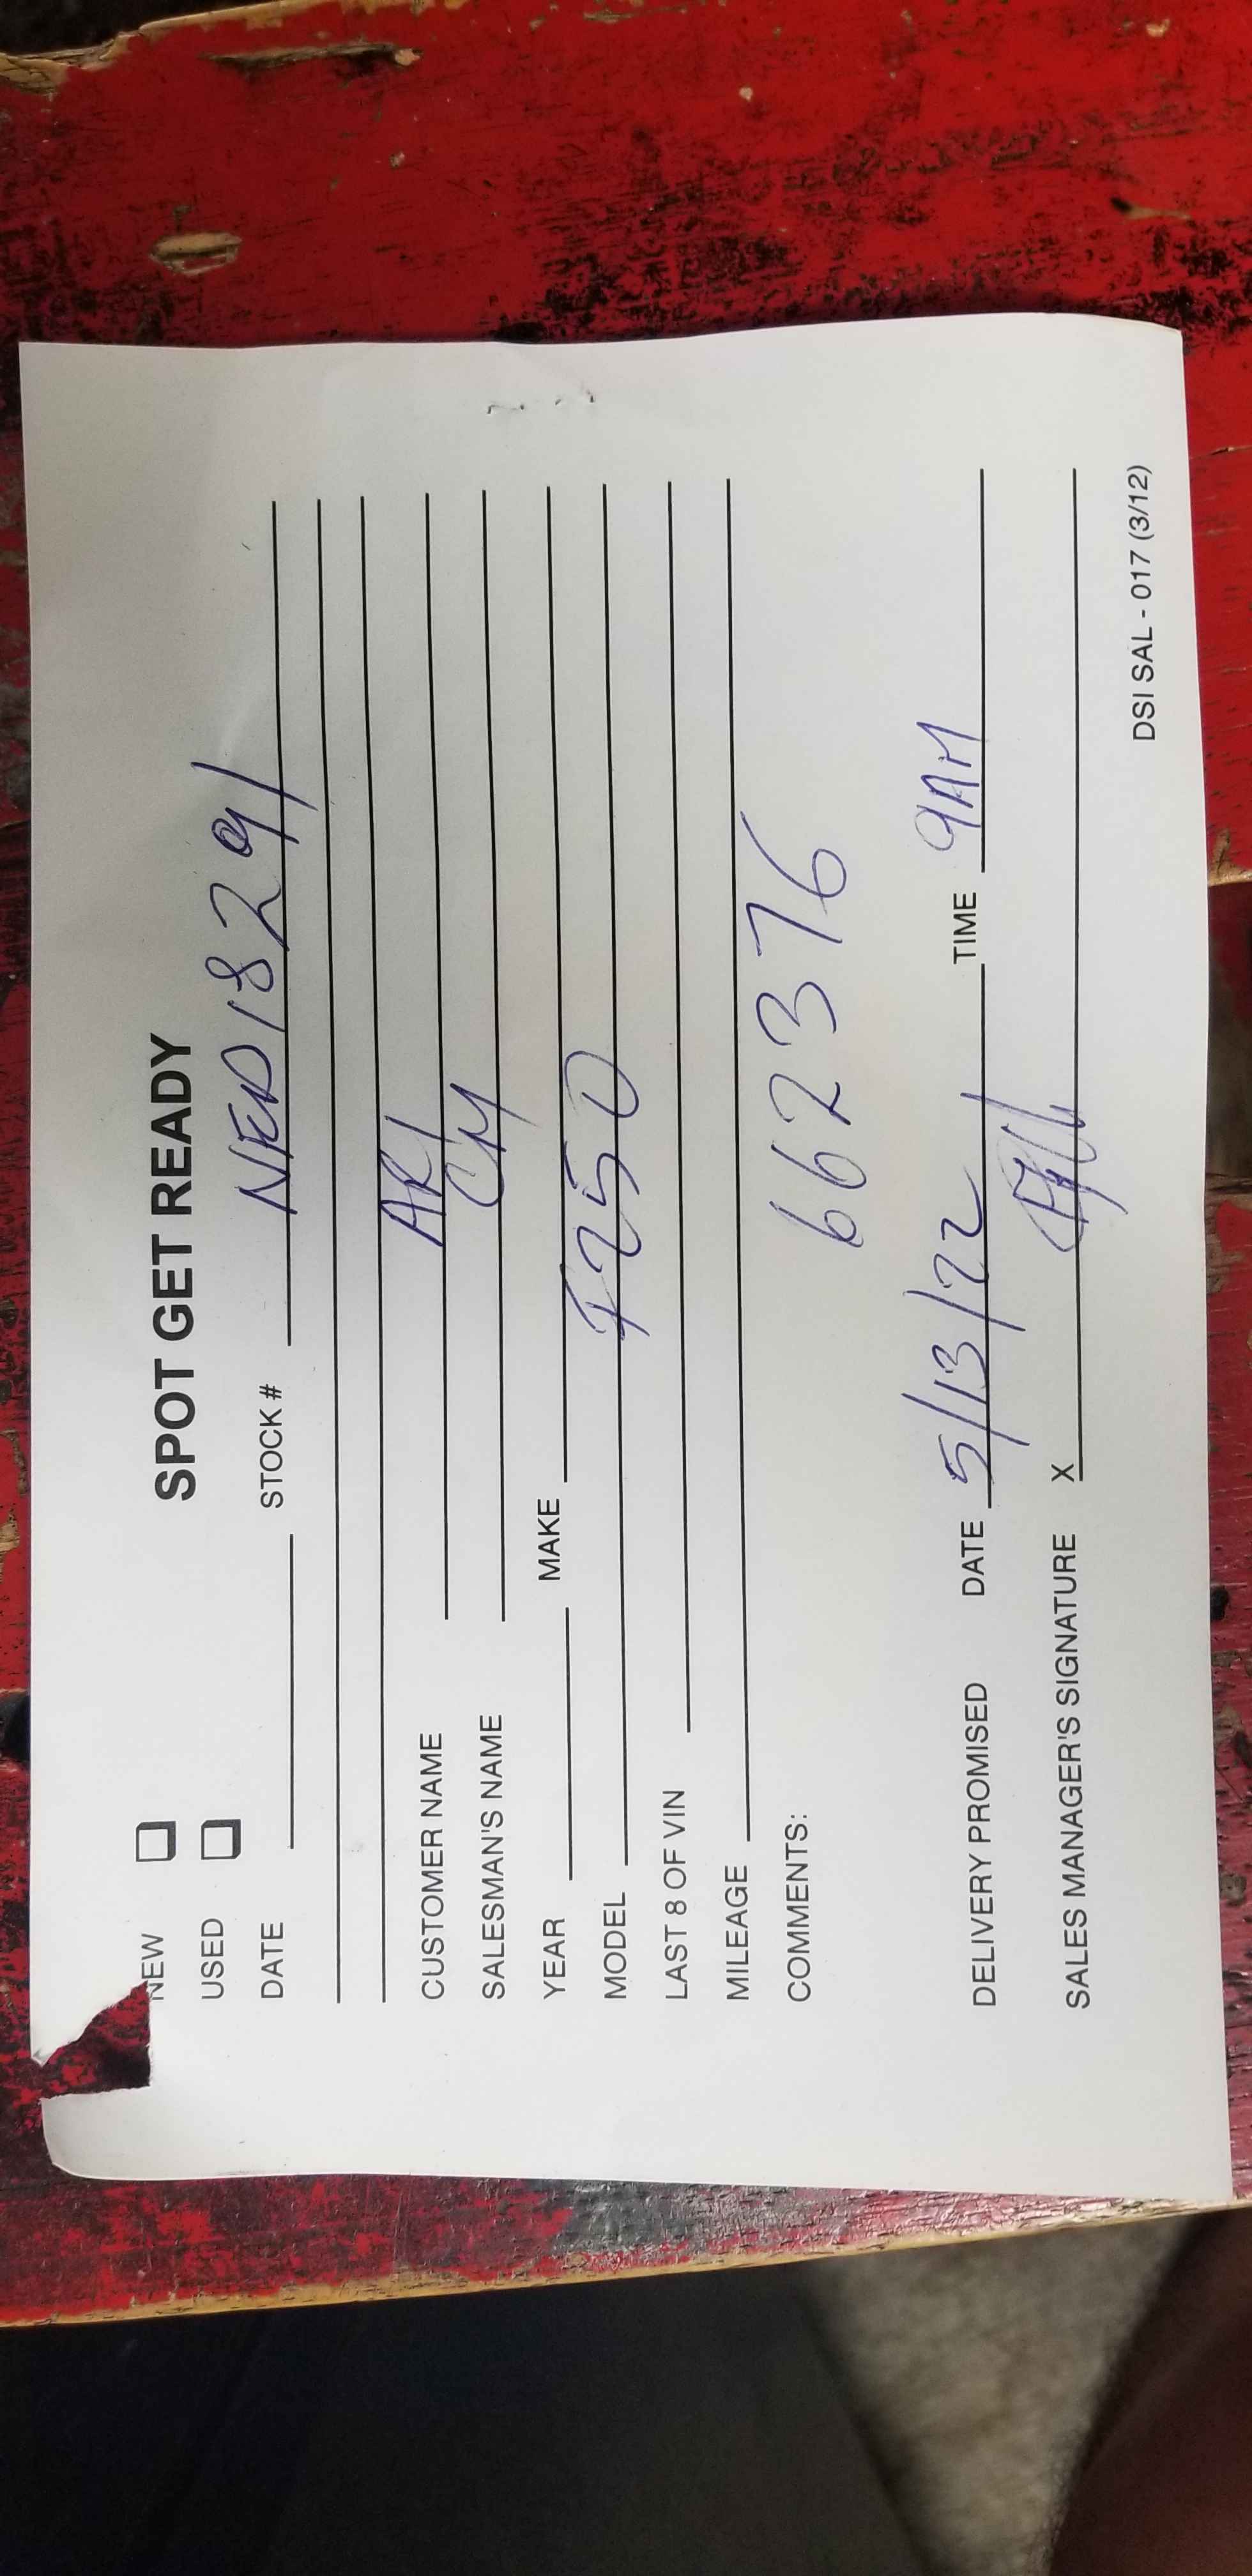 SPOT GET READY
NEW
USED
DATE STOCK # NED18291
CUSTOMER NAME ARI
SALESMAN'S NAME CM
YEAR MAKE
MODEL F250
LAST 8 OF VIN
MILEAGE
COMMENTS: 662376
DELIVERY PROMISED DATE 5/13/22 TIME 9AM
SALES MANAGER'S SIGNATURE X
DSI SAL - 017 (3/12)